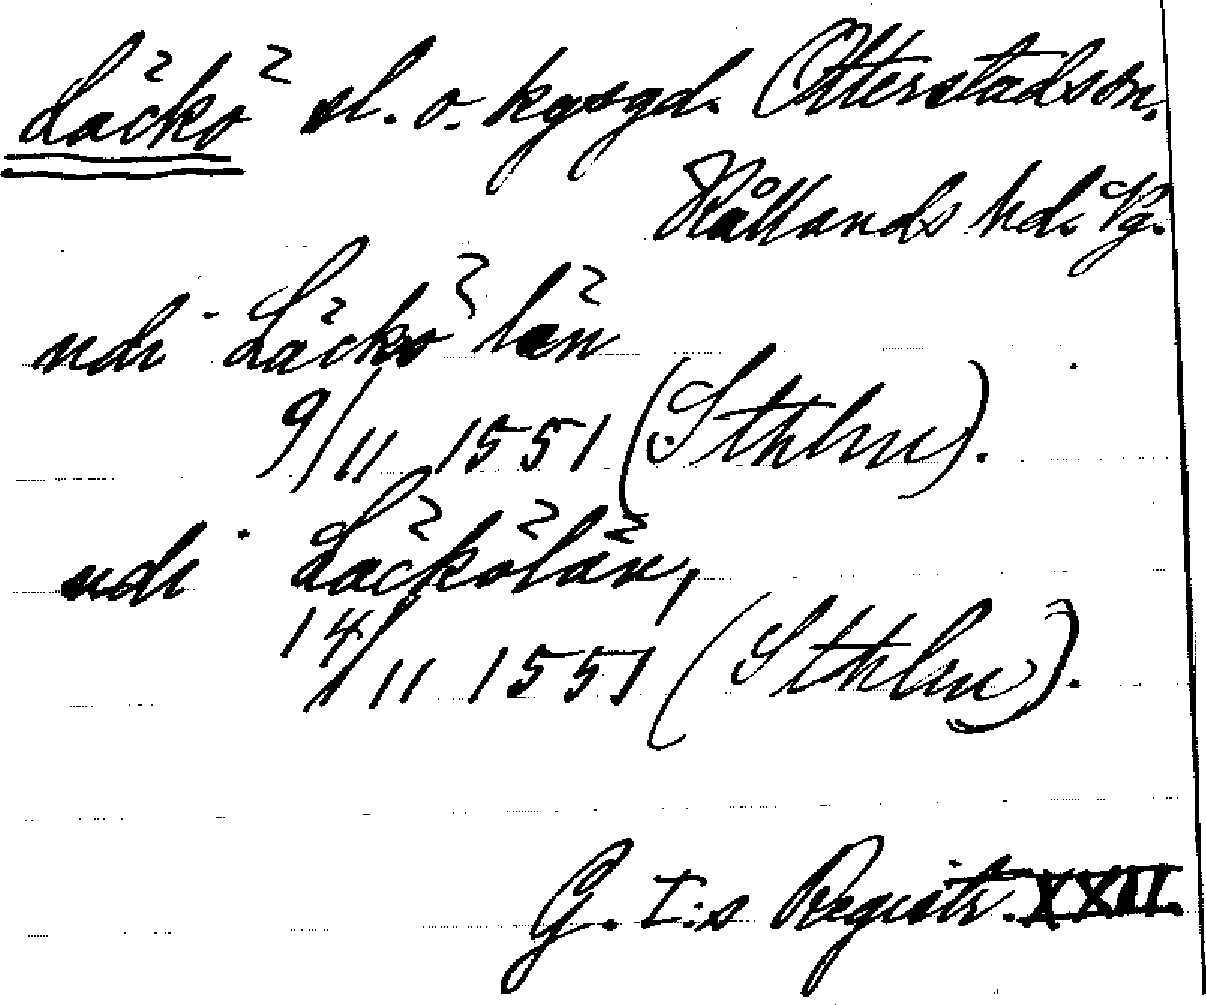 Läckö sl. o. kgsgd. Otterstads sn.
Kållands hd. Vg.
udi Läckö län
9/11 1551 (Sthlm).
udi Läckölän,
14/11 1551 (Sthlm).
G. I:s Registr. XXII.